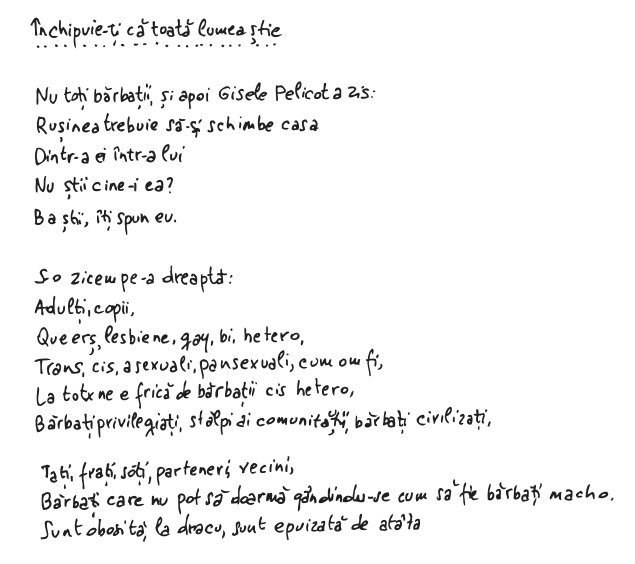 Închipuie-ți că toată lumea știe
Nu toți bărbații, și apoi Gisele Pelicot a zis:
Rușinea trebuie să-și schimbe casa
Dintr-a ei într-a lui
Nu știi cine-i ea?
Ba știi, îți spun eu.
S-o zicem pe-a dreaptă:
Adulți, copii,
Queerș, lesbiene, gay, bi, hetero,
Trans, cis, asexuali, pansexuali, cum om fi,
La totxne e frică de bărbații cis hetero,
Bărbați privilegiați, stâlpi ai comunității, bărbați civilizați,
Tați, frați, soți, parteneri, vecini,
Bărbați care nu pot să doarmă gândindu-se cum să fie bărbați macho.
Sunt obosită, la dracu, sunt epuizată de atâta